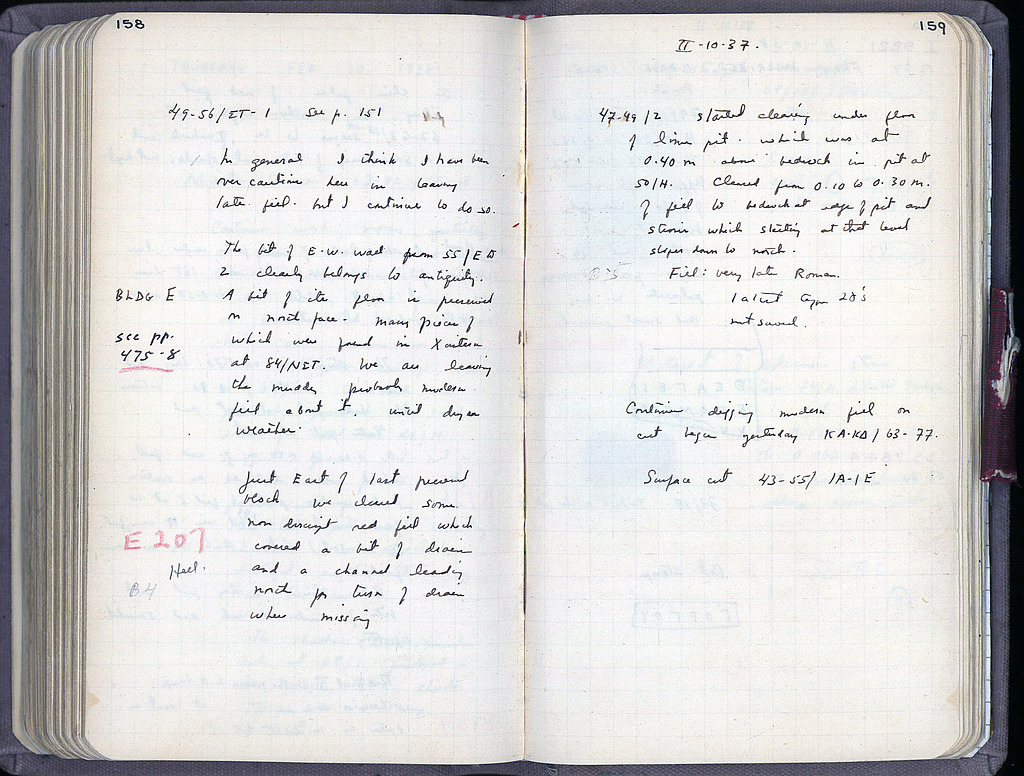 158
49-56/ΣΤ-1 See p. 151
In general I think I have been
over cautious here in leaving
late fill. but I continue to do so.
The bit of E.W. wall from 55/E to
2 clearly belongs to antiquity.
BLDG E
A bit of its floor is preserved
on north face. Many pieces of
see pp.
475-8
which were found in
at 84/ΝΣΤ. We are leaving
the muddy, probably modern
fill about it, until dryer
weather.
Just East of last preserved
block we cleared some
non descript red fill which
E 207
covered a bit of drain
Hell.
and a channel leading
B4
north for turn of drain
where missing
159
II-10-37.
47-49/2 Started clearing under floor
of lime pit. which was at
0.40 m above bedrock in pit at
50/H. Cleared from 0.10 to 0.30 m.
of fill to bedrock at edge of pit and
which starting at that level
slopes down to north.
B 5
Fill: very late Roman.
latest type 28's
not saved.
Continue digging modern fill on
cut begun yesterday KA-KΔ/63-77.
Surface cut 43-55/ 1A-1E